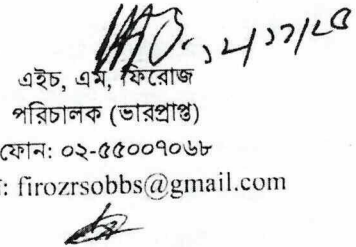 এইচ, এম, ফিরোজ
পরিচালক (ভারপ্রাপ্ত)
ফোন: ০২-৫৫০০৭০৬৮
: firozrsobbs@gmail.com